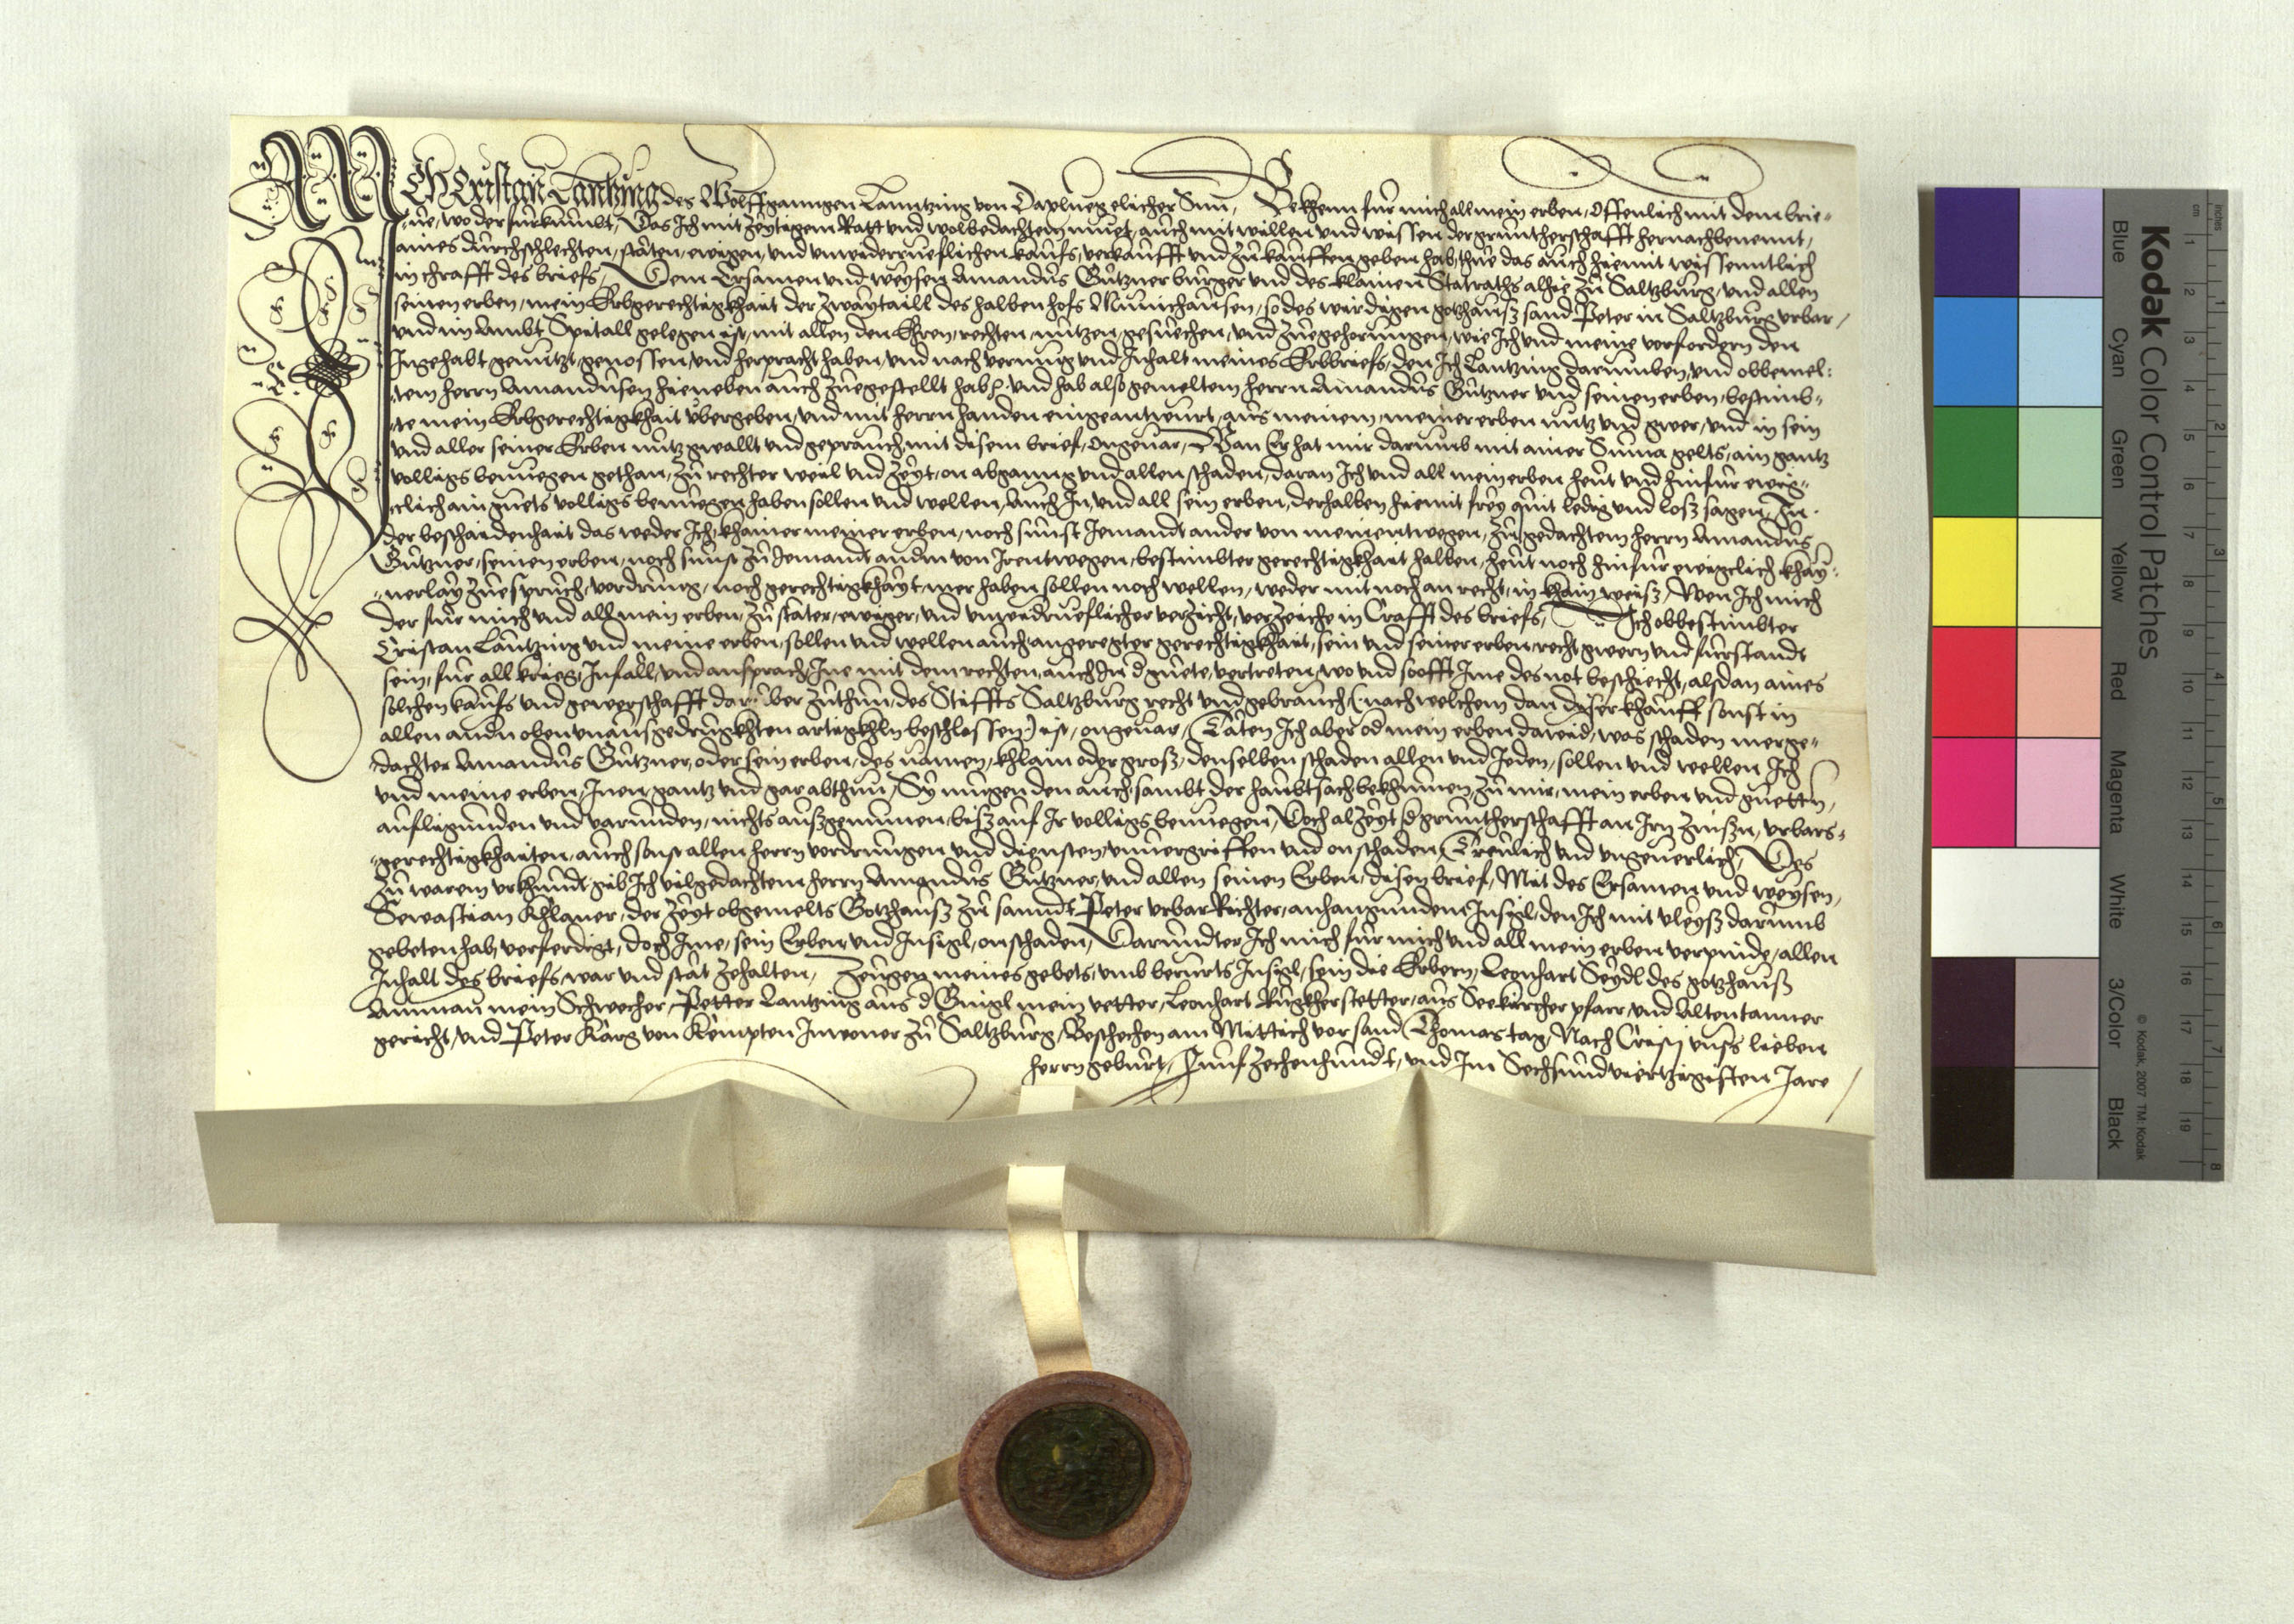 ICH Cristan Lantzing des Wolffganngen Lanntzing von Daxlueg elicher Sun, Bekhenn für mich all mein erben, Offenlich mit dem brie-
ue, wo der fürkumbt, Das Ich mit zeytigem Ratt und wolbedachtem muet, auch mit willen und wissen der gruntherschafft hernachbenennt,
aines durchschlechten, stäten, ewigen, und unwiderrueflichen kaufs, verkaufft und zu kauffen geben hab, thue das auch hiemit wissenntlich
in chrafft des briefs, Dem Ersamen und weysen Amandus Gützner burger und des klainen Statraths alhie zu Saltzburg, und allen
seinen erben, mein Erbgerechtigkhait der zwaytaill des halben hofs Munichausen, so des wirdigen gotzhauß sand Peter in Saltzburg urbar,
und im Ambt Spitall gelegen ist, mit allen den Ehren, rechten, nützen, gesuechen, und zuegehorungen, wie Ich und meine vorfordern den
Ingehabt genützt, genossen, und herpracht haben, und nach vermug und Inhalt meines Erbbriefs, den Ich Lantzing darumben, und obbemel-
tem herrn Amandusen hieneben auch zuegestellt hab, und hab also gemeltem herrn Amandus Gützner und seinen erben, bestimb-
te mein Erbgerechtigkhait übergeben, und mit herrn handen eingeantwurt, aus meinem, meiner erben nutz und gwer, und in sein
und aller seiner Erben nutz gwallt und geprauch, mit disem brief, ongeuar, Wan Er hat mir darumb mit ainer Suma gelts, ain gantz
volligs benuegen gethan, zu rechter weil und zeyt, on abganng und allen schaden, daran Ich und all mein erben heut und hinfür ewig-
clich ain guets volligs benuegen haben sollen und wellen, Auch In, und all sein erben, derhalben hiemit frey quit ledig und loß sagen, In
der beschaidenhait das weder Ich, khainer meiner erben, noch sunst Iemandt ander von meinentwegen, zu gedachtem herrn Amandus
Gützner, seinen erben, noch sunst zu Iemandt andern von Irentwegen, bestimbter gerechtigkhait halben, heut noch hinfür ewigclich khay-
nerlay zuespruch, vordrung, noch gerechtigkhayt, mer haben sollen noch wellen, weder mit noch an recht, in khain weiß, Wen Ich mich
der für mich und all mein erben, zu stäter, ewiger, und unwidrueflicher verzicht, verzeiche in Crafft des briefs, Ich obbestimbter
Cristan Lantzing und meine erben, sollen und wellen auch angeregter gerechtigkhait, sein und seiner erben, recht gwern und fürstandt
sein, für all krieg, Infäll, und ansprach, Ine mit dem rechten, auch In d guete, vertreten, wo und sooft Ime des not beschiecht, alsdan aines
solchen kaufs und gewerschafft darüber zuthun, des Stiffts Saltzburg recht und gebrauch (nach welchem dan diser khauff sonst in
allen andn oben unausgedrugkhten artigkhln beschlossen) ist, ongeuar, Täten Ich aber od mein erben dawid, was schaden merge-
dachter Amandus Gützner, oder sein erben, des namen, khlain oder groß, denselben schaden allen und Ieden, sollen und wellen Ich
und meine erben, Inen, gantz und gar abthun, Sy mügen den auch, sambt der haubtsach bekhumen, zu mir, mein erben und guettn,
aufligunden und varunden, nichts außgenumen, biß auf Ir volligs benuegen, Doch alzeyt d gruntherschafft an Irn zinßn, urbars-
gerechtigkhaiten, auch sonst allen herrn vordrungen und diensten, unuergriffen und on schaden, Treulich und ungeuerlich, Des
zu warem urkhundt, gib Ich vilgedachtem herrn Amandus Gützner, und allen seinen Erben, disen brief, Mit des Ersamen und weysen,
Sewastian Khlaner, der zeyt obgemelts Gotzhauß zu sanndt Peter urbar Richter, anhangunden Insigl, den Ich mit vleyß darumb
gebeten hab, verferdigt, doch Ime, sein Erben, und Insigl, on schaden, Darundter Ich mich für mich und all mein erben verpinde, allen
Inhalt des briefs, war und stät zehalten, Zeugen meines gebets, umb berürts Insigl, sein die Erbern, Leonhart Seydl des gotzhauß
Amman mein Schwecher, Petter Lantzing aus d Gnigl mein vetter, Leonhart Rugkherstetter, aus Seekircher pfarr, und Altentanner
gericht, und Peter Karg von Kempten Inwoner zu Saltzburg, Beschechen am Mittich vor sand Thomas tag, Nach Cristi unss lieben
herrn geburt, Funfzechenhundt, und Im Sechsundviertzigisten Jare
Kodak Color Control Patches
Blue Cyan Green Yellow Red Magenta White 3/Color Black
© Kodak, 2007 TM: Kodak
cm 1 2 3 4 5 6 7 8 9 10 11 12 13 14 15 16 17 18 19
inches 1 2 3 4 5 6 7 8